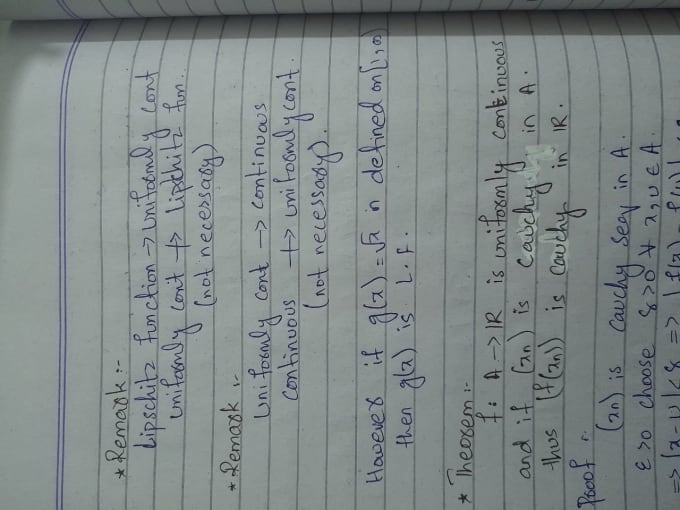 * Remark :-
Lipschitz function → Uniformly cont
Uniformly cont ↛ Lipschitz fun.
(not necessary)
* Remark :-
Uniformly cont → continuous
continuous ↛ uniformly cont.
(not necessary).
However if g(x) = √x is defined on [1,∞)
then g(x) is L.F.
* Theorem :-
f: A → IR is uniformly continuous
and if (xn) is cauchy in A.
thus (f(xn)) is cauchy in IR.
Proof :-
(xn) is cauchy seqn in A.
ε>0 choose δ>0 ∀ x,u ∈ A
=> |x-u|<δ => |f(x) - f(u)|